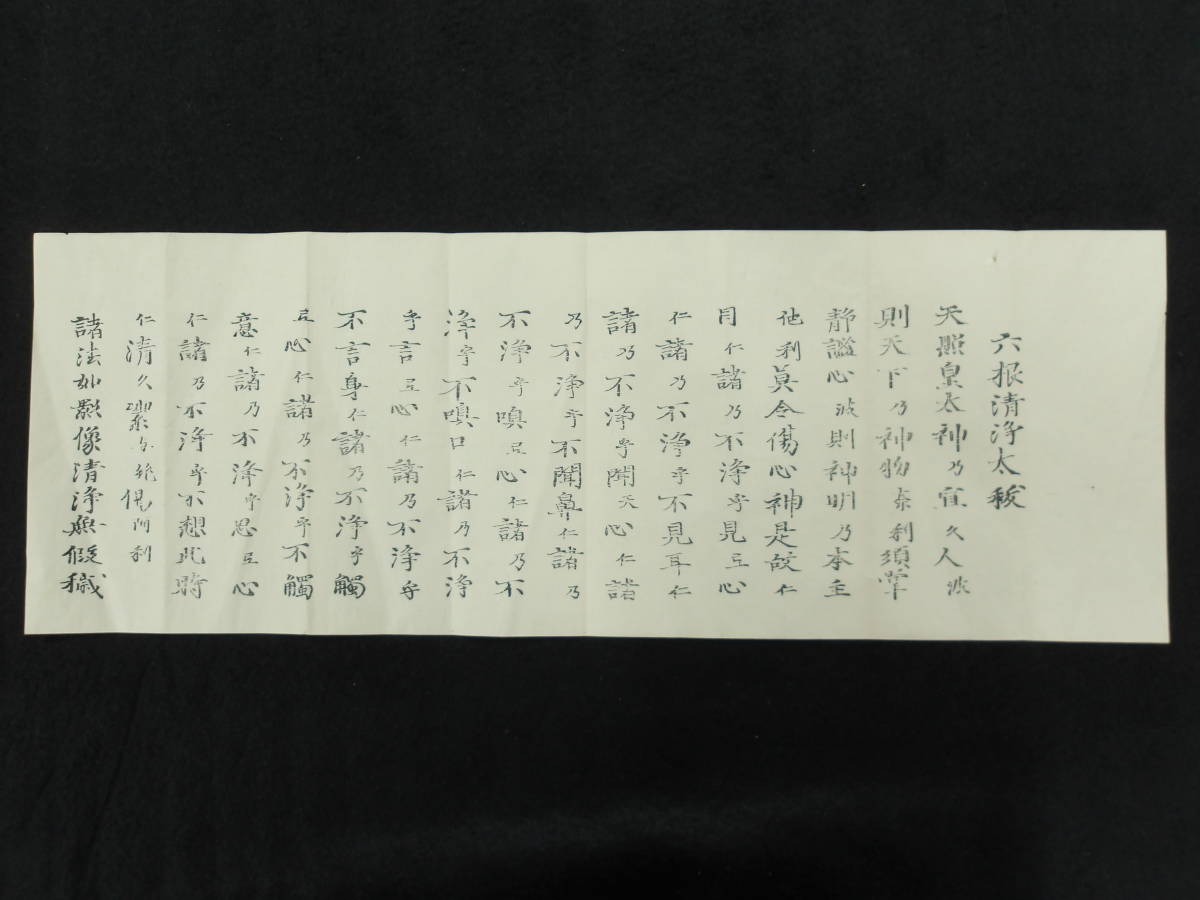 六根清浄太祓
天照皇太神乃宣久人波
則天下乃神物奈利須掌
静謐心波則神明乃本主
他利莫令傷心神是故仁
目仁諸乃不浄乎見互心
仁諸乃不浄乎不見耳仁
諸乃不浄乎聞天心仁諸
乃不浄乎不聞鼻仁諸乃
不浄乎嗅互心仁諸乃不
浄乎不嗅口仁諸乃不浄
乎言互心仁諸乃不浄乎
不言身仁諸乃不浄乎觸
互心仁諸乃不浄乎不觸
意仁諸乃不浄乎思互心
仁諸乃不浄乎不想此時
仁清久潔幾偈阿利
諸法如影像清浄無假穢